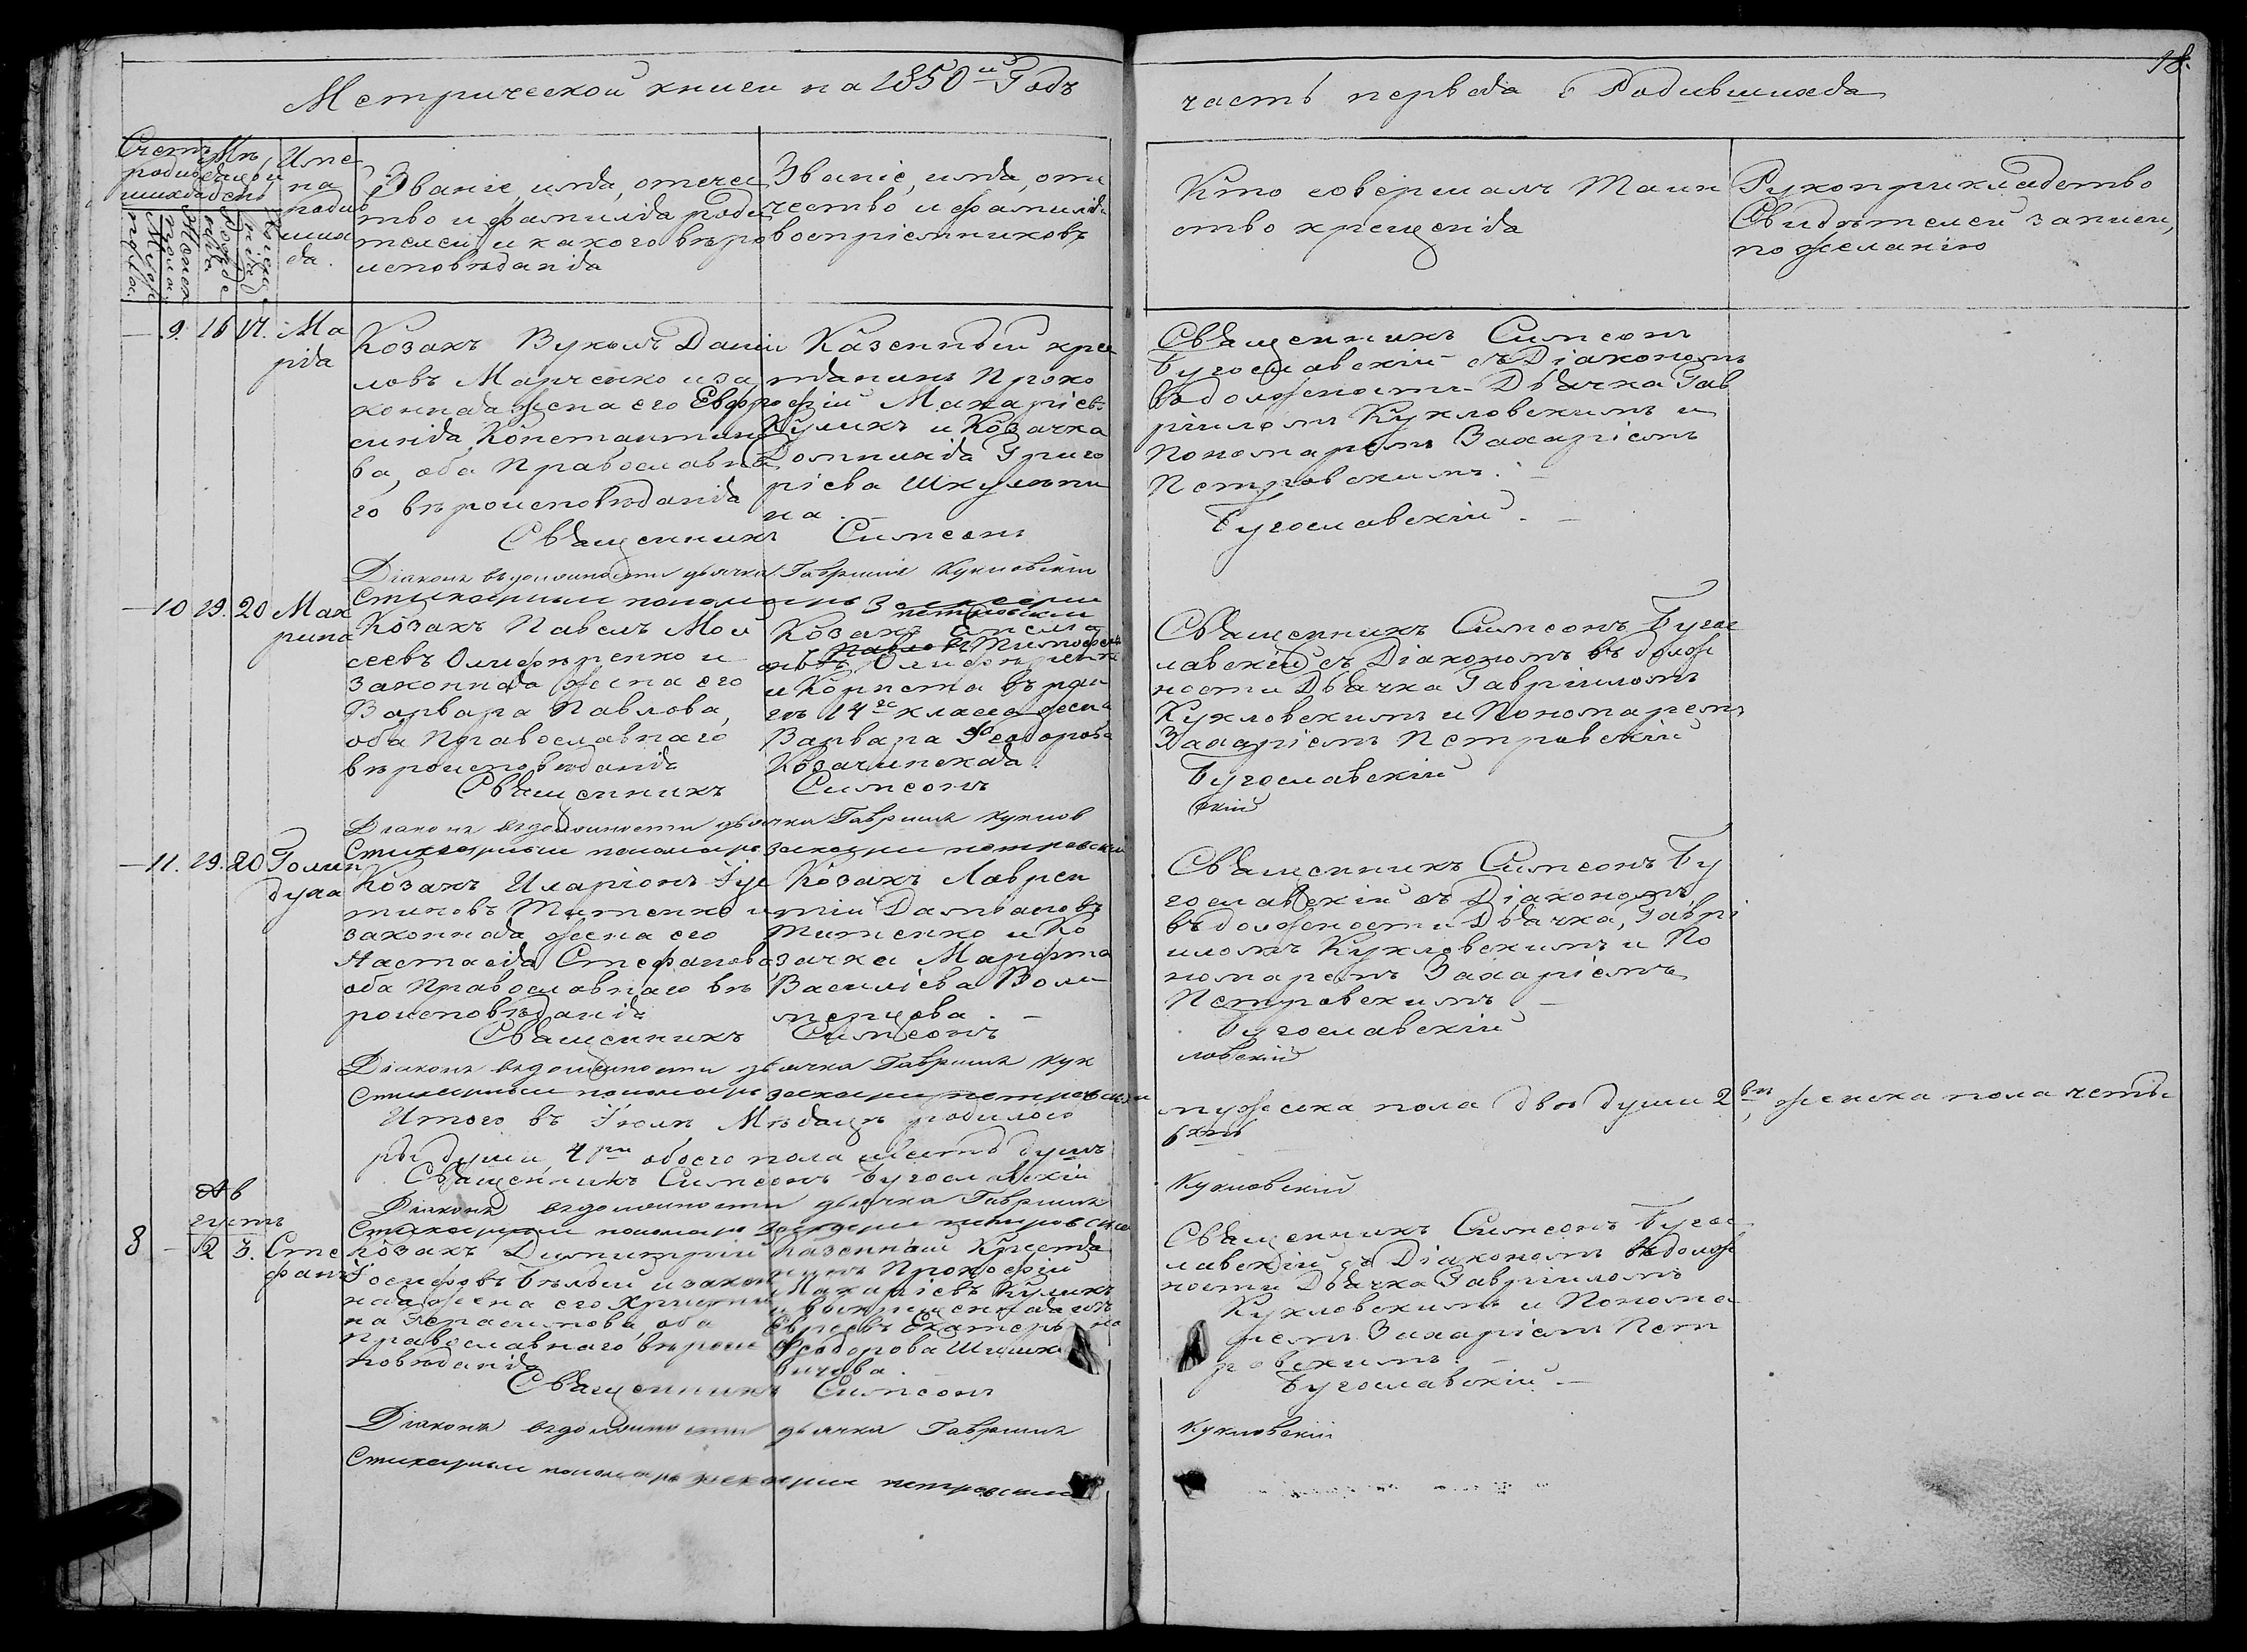 18.
Метрической книги на 1850й Годъ
часть первая о Родившихся
Счетъ родившихся
Мужеск пола.
Женск пола.
Мѣсяцъ и день
рожде
крещенія
Име
на
родив
шихся.
Званіе, имя, отече
ство и фамилія роди
телей и какого вѣро
исповѣданія
Званіе, имя, оте
чество и фамилія
воспріемниковъ
Кто совершалъ Таин
ство крещенія
Рукоприкладство
Свидѣтелей записи,
по желанію
— 9. 16 17. Ма
рія
Козакъ Вуколъ Данiи
ловъ Марченко и за
конная жена его Евфро
синія Константино
ва, оба Православна
го вѣроисповѣданія
Казенный кре
стянинъ Проко
фій Макаріевъ
Куликъ и Козачка
Домникія Григо
ріева Шкулѣпи
на.
Священникъ Симеонъ
Бугославскій съ Діакономъ
въ должности Дьячка Гав
ріиломъ Кукловскимъ и
Пономаремъ Захаріемъ
Петровскимъ. —
Священникъ Симеонъ Бугославскій. —
Діаконъ въ должности дьячка Гавріилъ Кукловскій
Стихарный пономарь Захарій
Петровскій
— 10 19. 20 Мак
рина
Козакъ Павелъ Мои
сеевъ Олифѣренко и
Законная жена его
Варвара Павлова,
оба Православнаго
вѣроисповѣданія
Козакъ
Тимофее
въ Олифѣренко
и Корнета въ
14го класса жена
Варвара Феодорова
Козачинская.
Священникъ Симеонъ Бугос
лавскій съ Діакономъ въ долж
ности Дьячка Гавріиломъ
Кукловскимъ и Пономаремъ
Захаріемъ Петровскій
Священникъ Симеонъ Бугославскій
Діаконъ въ должности дьячка Гавріилъ Куклов
скій
Стихарный пономарь Захарій Петровскій
— 11. 19. 20 Голин
духа
Козакъ Иларіонъ Іус
тиновъ Титенко и
законная жена его
Настасія Стефанова
оба Православнаго вѣ
роисповѣданія
Козакъ Лаврен
тій Даміановъ
Титенко и Ко
зачка Марфа
Василіева Воли
перцова. —
Священникъ Симеонъ Бу
гославскій съ Діакономъ
въ должности Дьячка, Гаврі
иломъ Кукловскимъ и По
номаремъ Захаріемъ
Петровскимъ —
Священникъ Симеонъ Бугославскій
Діаконъ въ должности дьячка Гавріилъ Кук
ловскій
Стихарный пономарь Захарій Петровскій
Итого въ Іюлѣ Мѣсяцѣ родилось мужеска пола двѣ души 2вѣ, женска пола четы
ры души 4ри обоего пола шесть душъ 6сть
Священникъ Симеонъ Бугославскій
Діаконъ въ должности дьячка Гавріилъ Кукловскій
Стихарный пономарь Захарій Петровскій
Ав
густъ
8 — 2 3. Сте
фанъ
Козакъ Димитрій
Іосифовъ Бѣлый и закон
ная жена его Христи
на Герасимова, оба
Православнаго, вѣроис
повѣданія
Казенный Крестя
нинъ Прокофій
Макаріевъ Куликъ
и выкрещенная изъ
Евреевъ Екатерина
Феодорова Шишке
вичова.
Священникъ Симеонъ Бугос
лавскій съ Діакономъ въ долж
ности Дьячка Гавріиломъ
Кукловскимъ и Понома
ремъ Захаріемъ Пет
ровскимъ. —
Священникъ Симеонъ Бугославскій —
Діаконъ въ должности дьячка Гавріилъ Кукловскій
Стихарный пономарь Захарій Петровскій